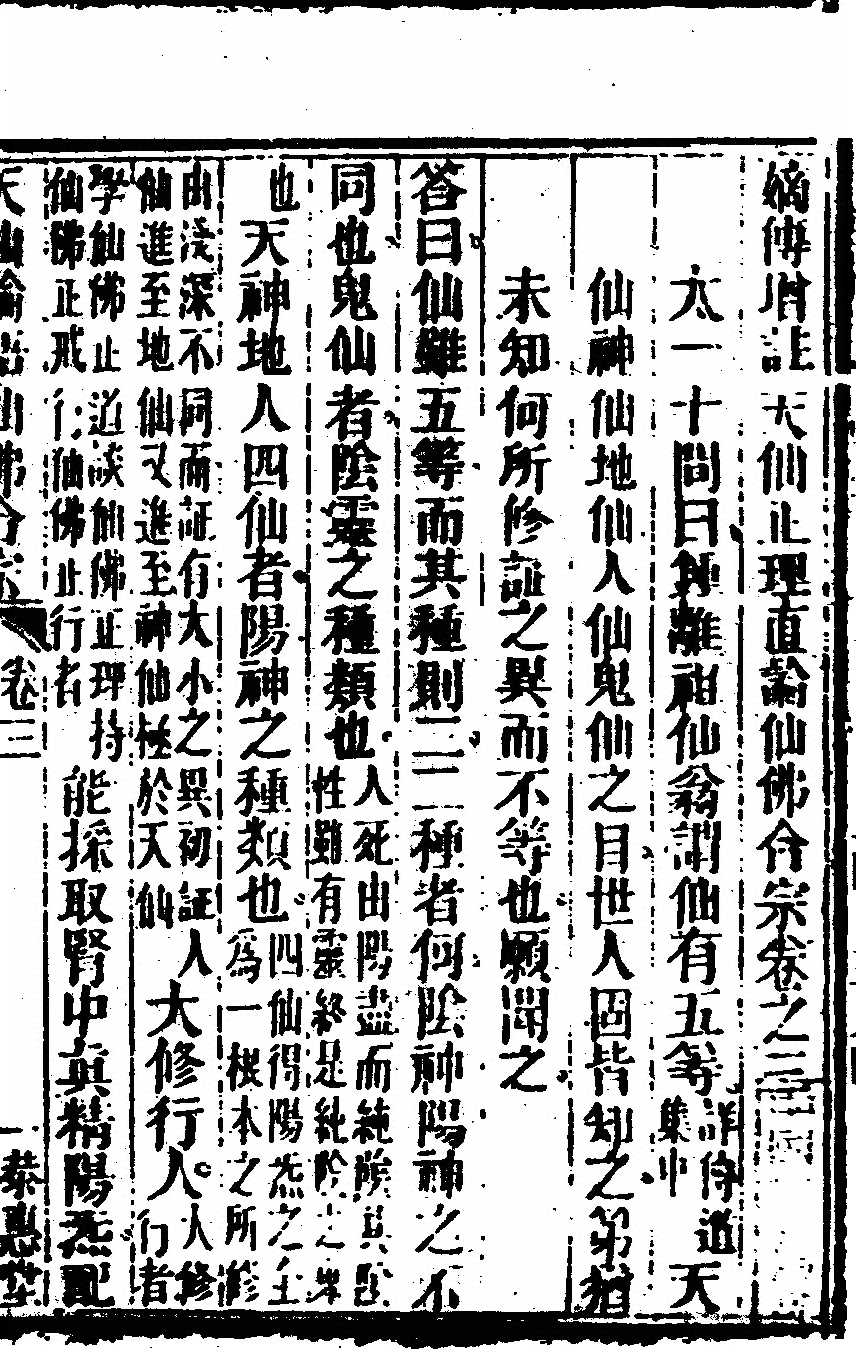 嫡傳增註天仙正理直論仙佛合宗卷之三
太一十問曰鍾離祖仙翁謂仙有五等詳傳道集中天
仙神仙地仙人仙鬼仙之目世人固皆知之第猶
未知何所修證之異而不等也願聞之
答曰仙雖五等而其種則二二種者何陰神陽神之不
同也鬼仙者陰靈之種類也人死出陽盡而純陰其陰性雖有靈終是純陰之鬼
也天神地人四仙者陽神之種類也四仙得陽炁之主為一根本之所修
由淺深不同而証有大小之異初証人仙進至地仙又進至神仙極於天仙大修行人大修行者
學仙佛正道談仙佛正理持仙佛正戒行仙佛正行者能採取腎中真精陽炁配
天仙論語仙佛合宗 卷三